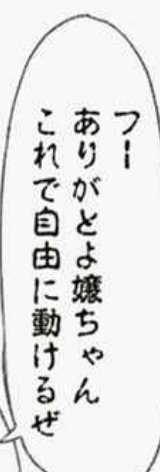 フー
ありがとよ嬢ちゃん
これで自由に動けるぜ